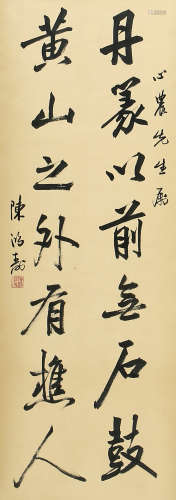 心農先生屬
丹篆以前無石鼓
黃山之外有樵人
陳鴻壽